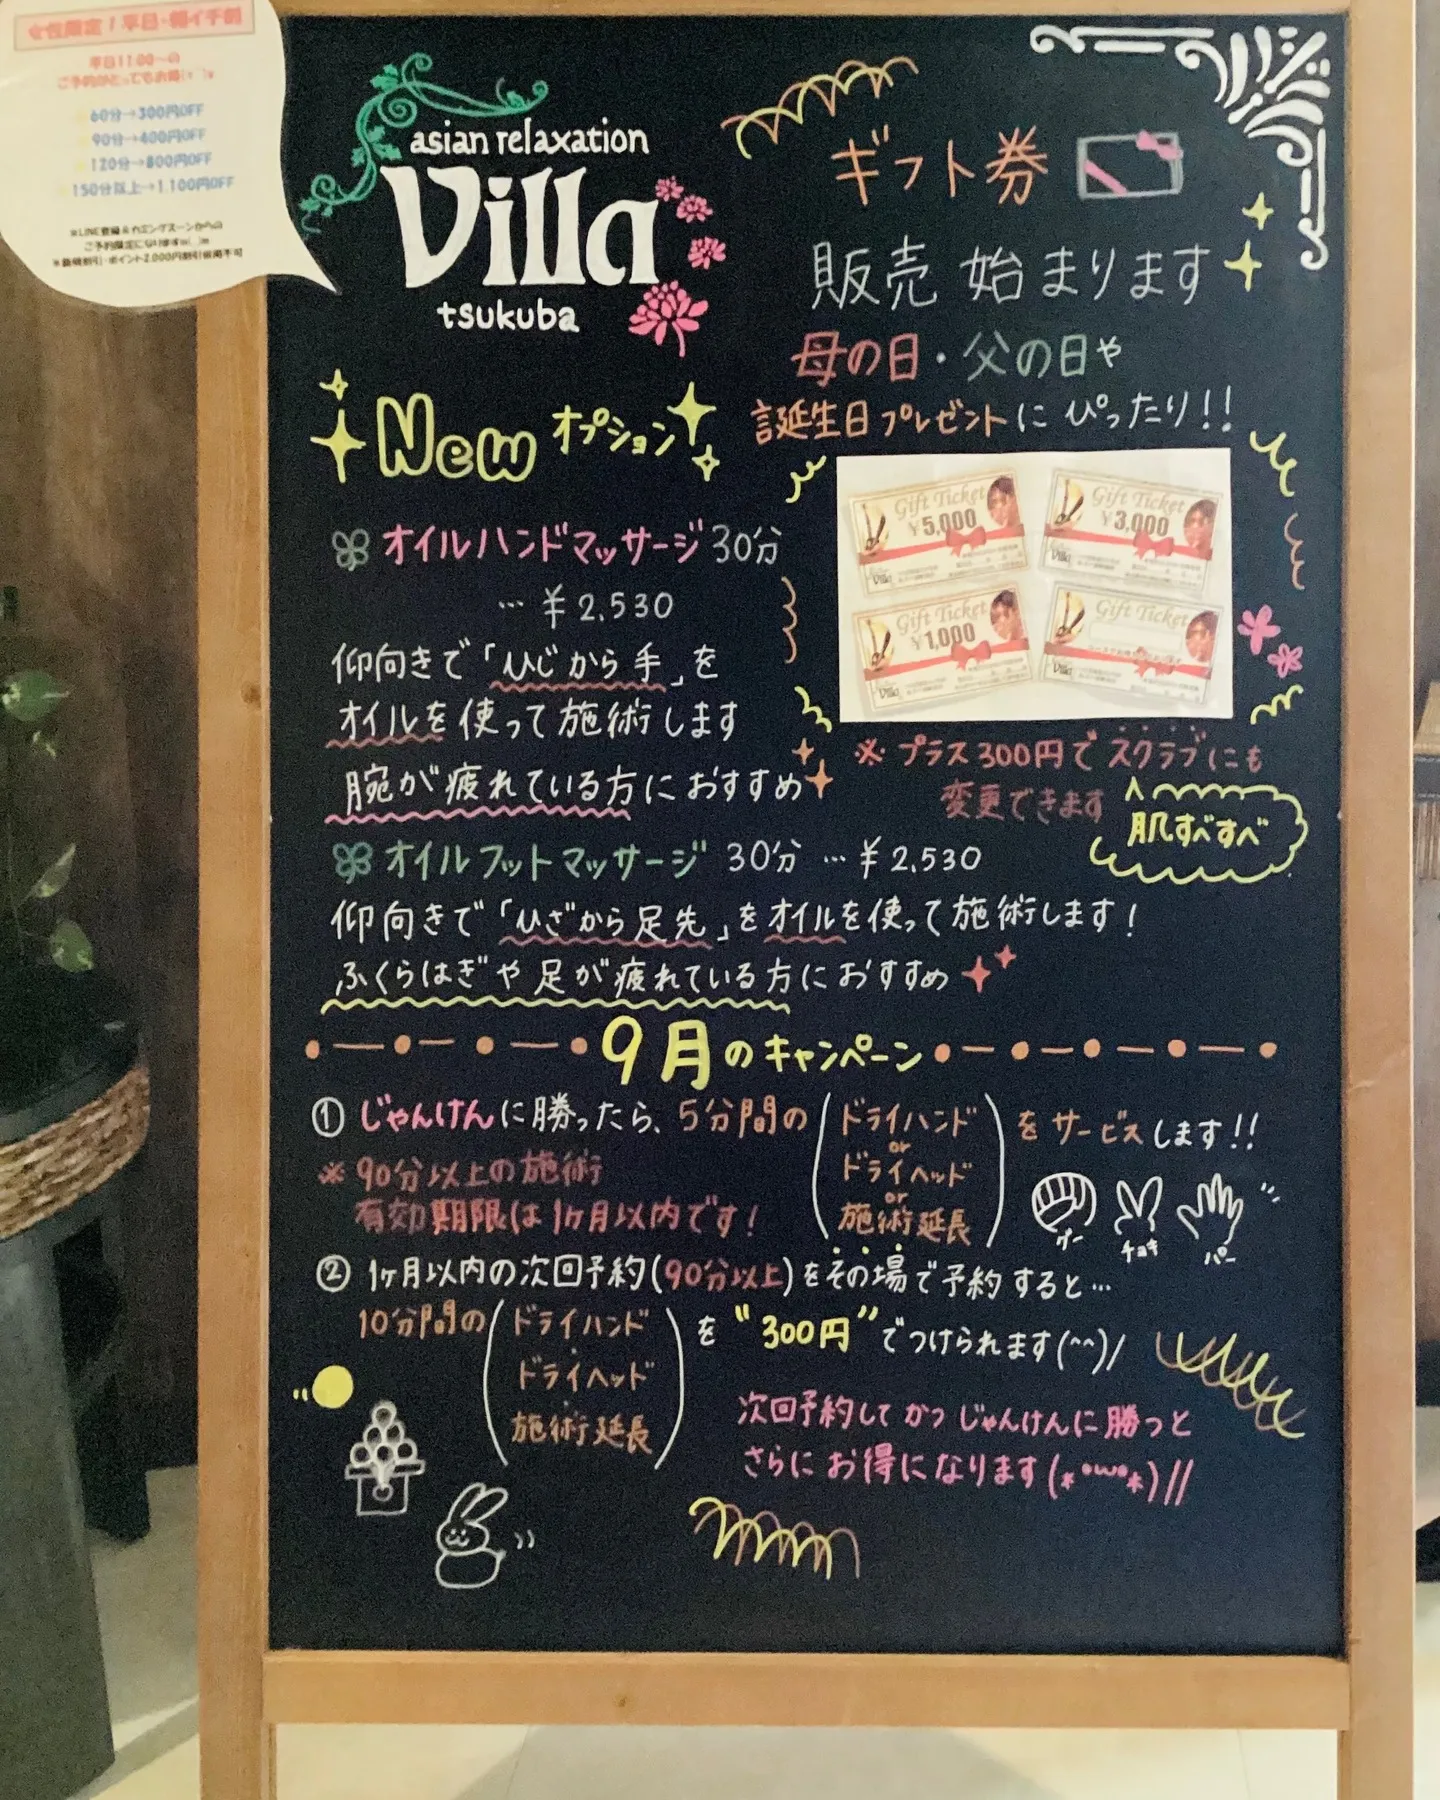 女性限定!平日・朝イチ割
平日11:00〜の
60分→300円OFF
90分→400円OFF
120分→800円OFF
150分以上→1,100円OFF
asian relaxation
Villa
tsukuba
ギフト券
販売 始まります
母の日・父の日や
誕生日プレゼントに ぴったり!!
Gift Ticket
¥5,000
Villa
Gift Ticket
¥3,000
Villa
Gift Ticket
¥1,000
Villa
Gift Ticket
Villa
※プラス300円でスクラブにも
変更できます
肌すべすべ
New オプション
オイルハンドマッサージ 30分
… ¥2,530
仰向きで「ひじから手」を
オイルを使って施術します
腕が疲れている方におすすめ
オイルフットマッサージ 30分 … ¥2,530
仰向きで「ひざから足先」をオイルを使って施術します!
ふくらはぎや足が疲れている方におすすめ
9月のキャンペーン
① じゃんけんに勝ったら、5分間の(ドライハンド
or
ドライヘッド
or
施術延長)をサービスします!!
※90分以上の施術
有効期限は1ヶ月以内です!
グー
チョキ
パー
② 1ヶ月以内の次回予約(90分以上)をその場で予約すると…
10分間の(ドライハンド
ドライヘッド
施術延長)を"300円"でつけられます(^^)/
次回予約して かつ じゃんけんに勝つと
さらにお得になります(*°ω°*)//